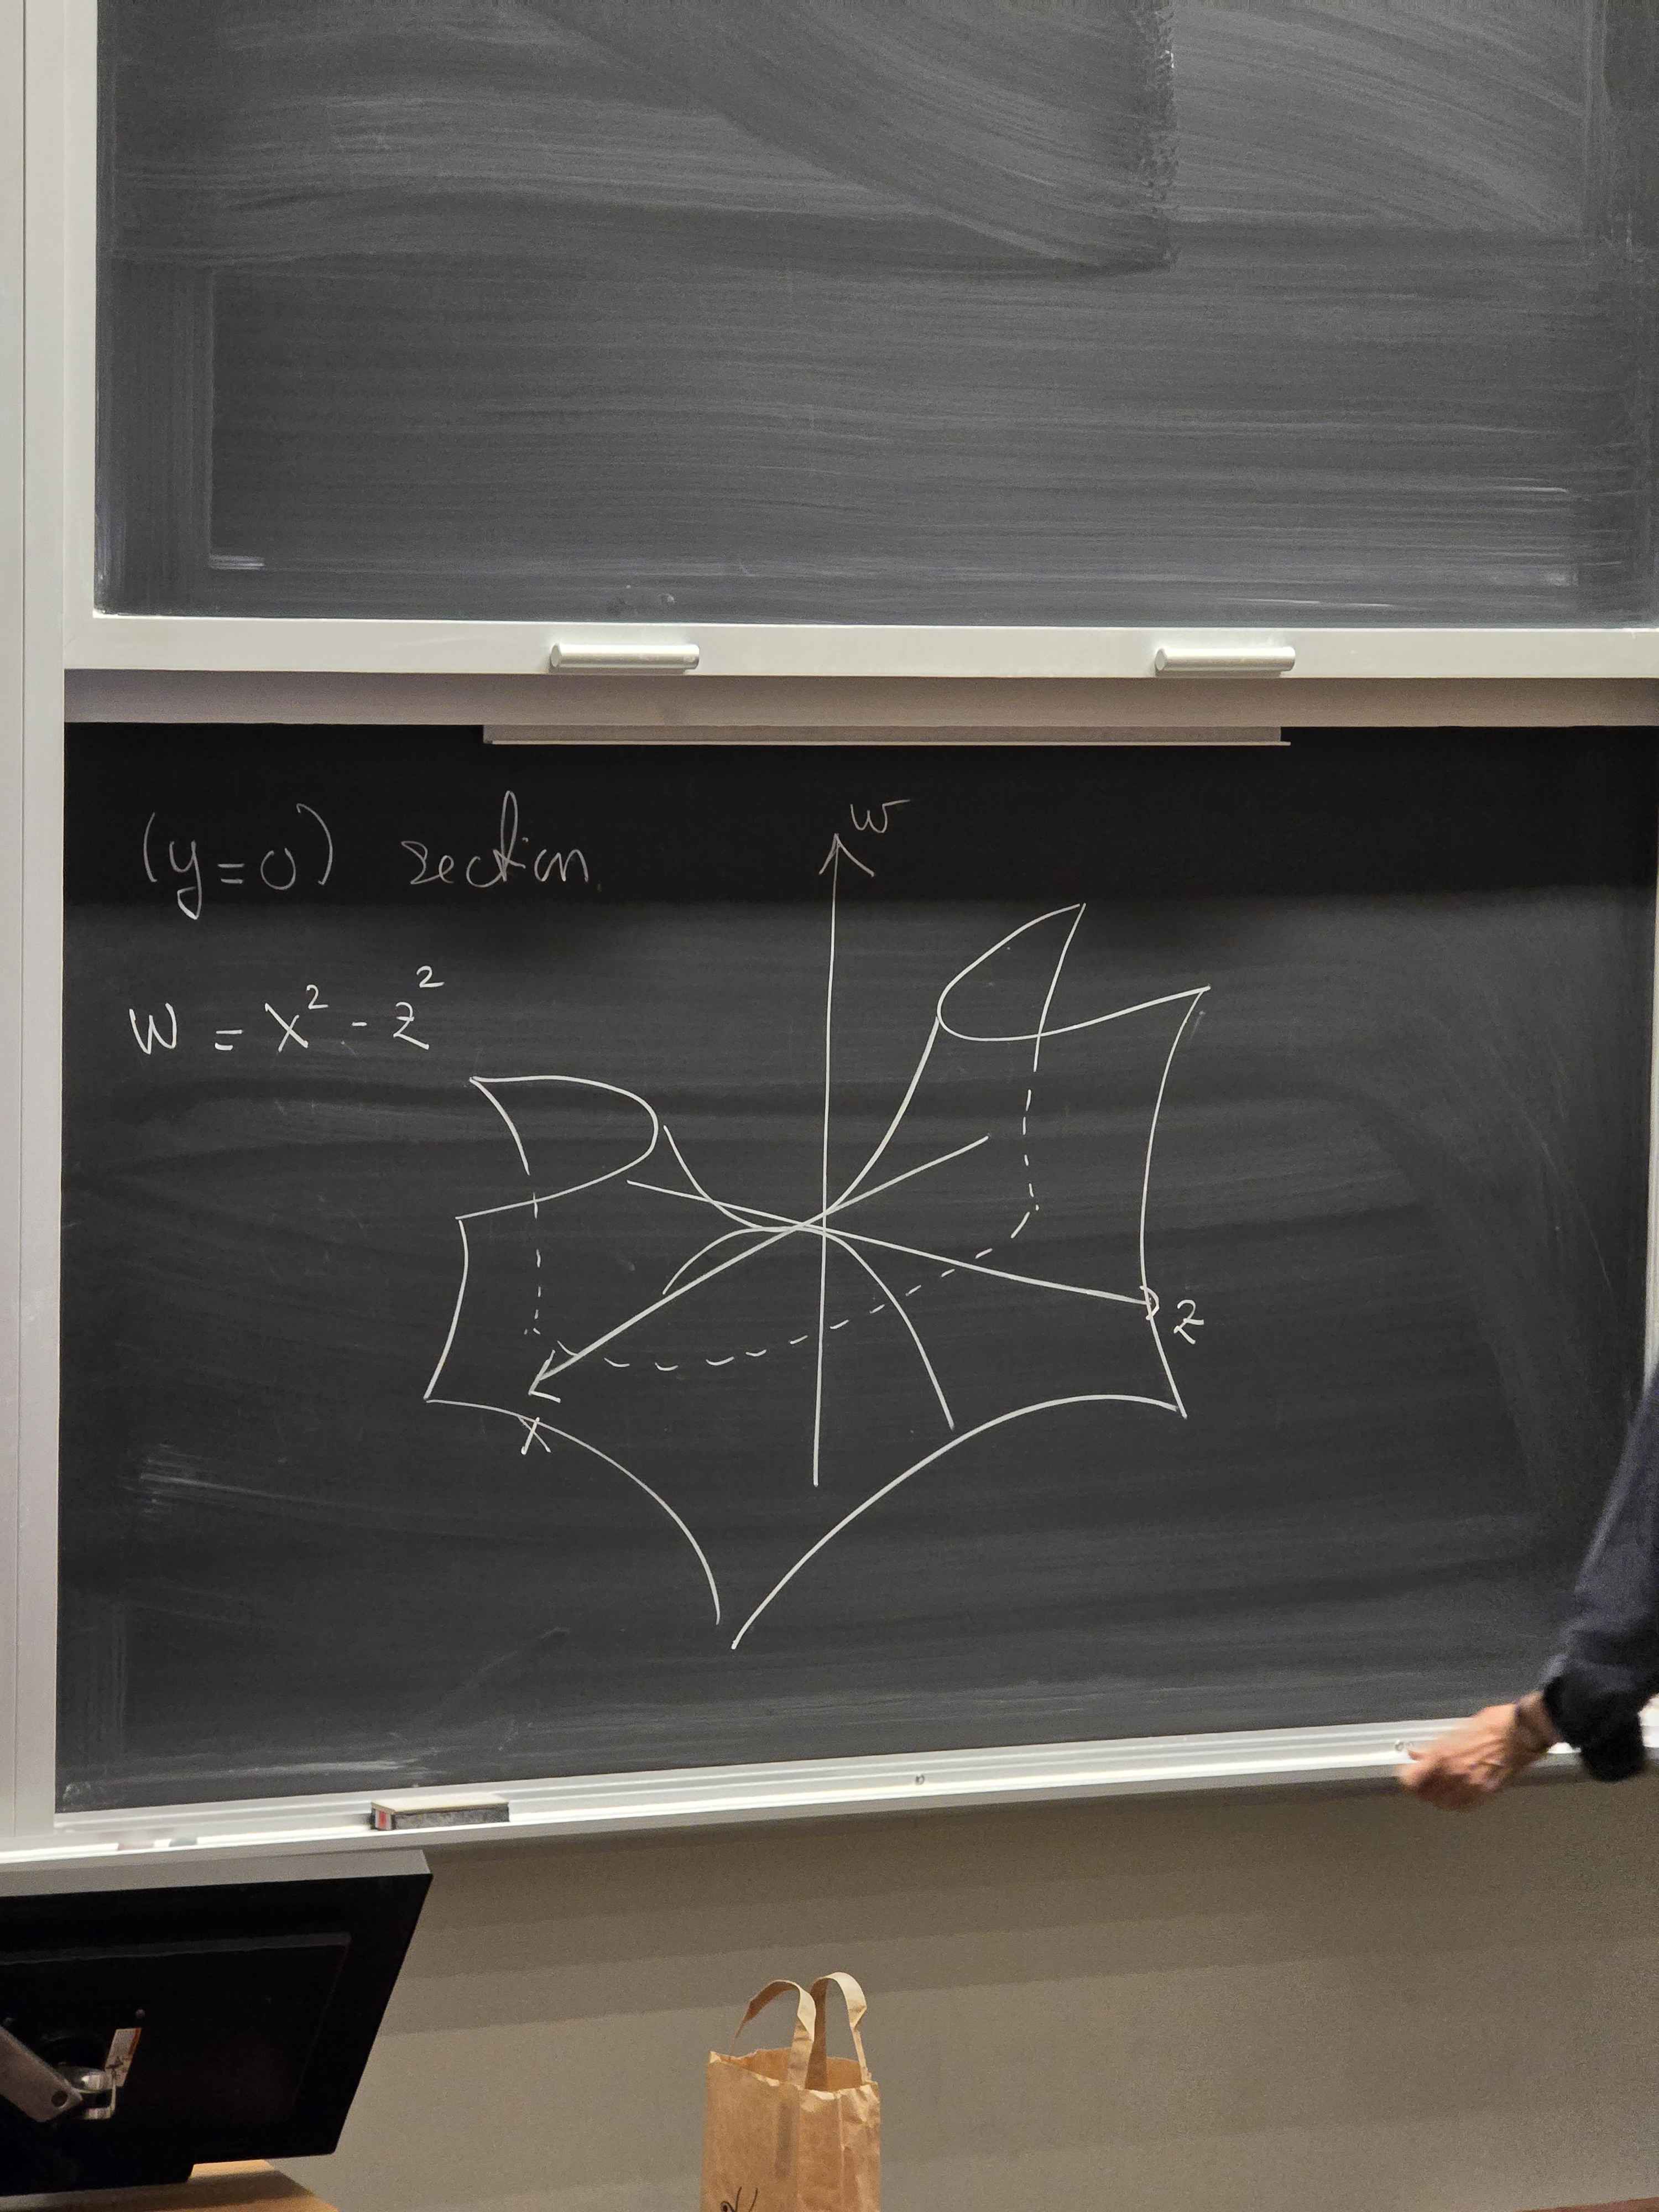 (y=0) section
w
W = x² - z²
z
x